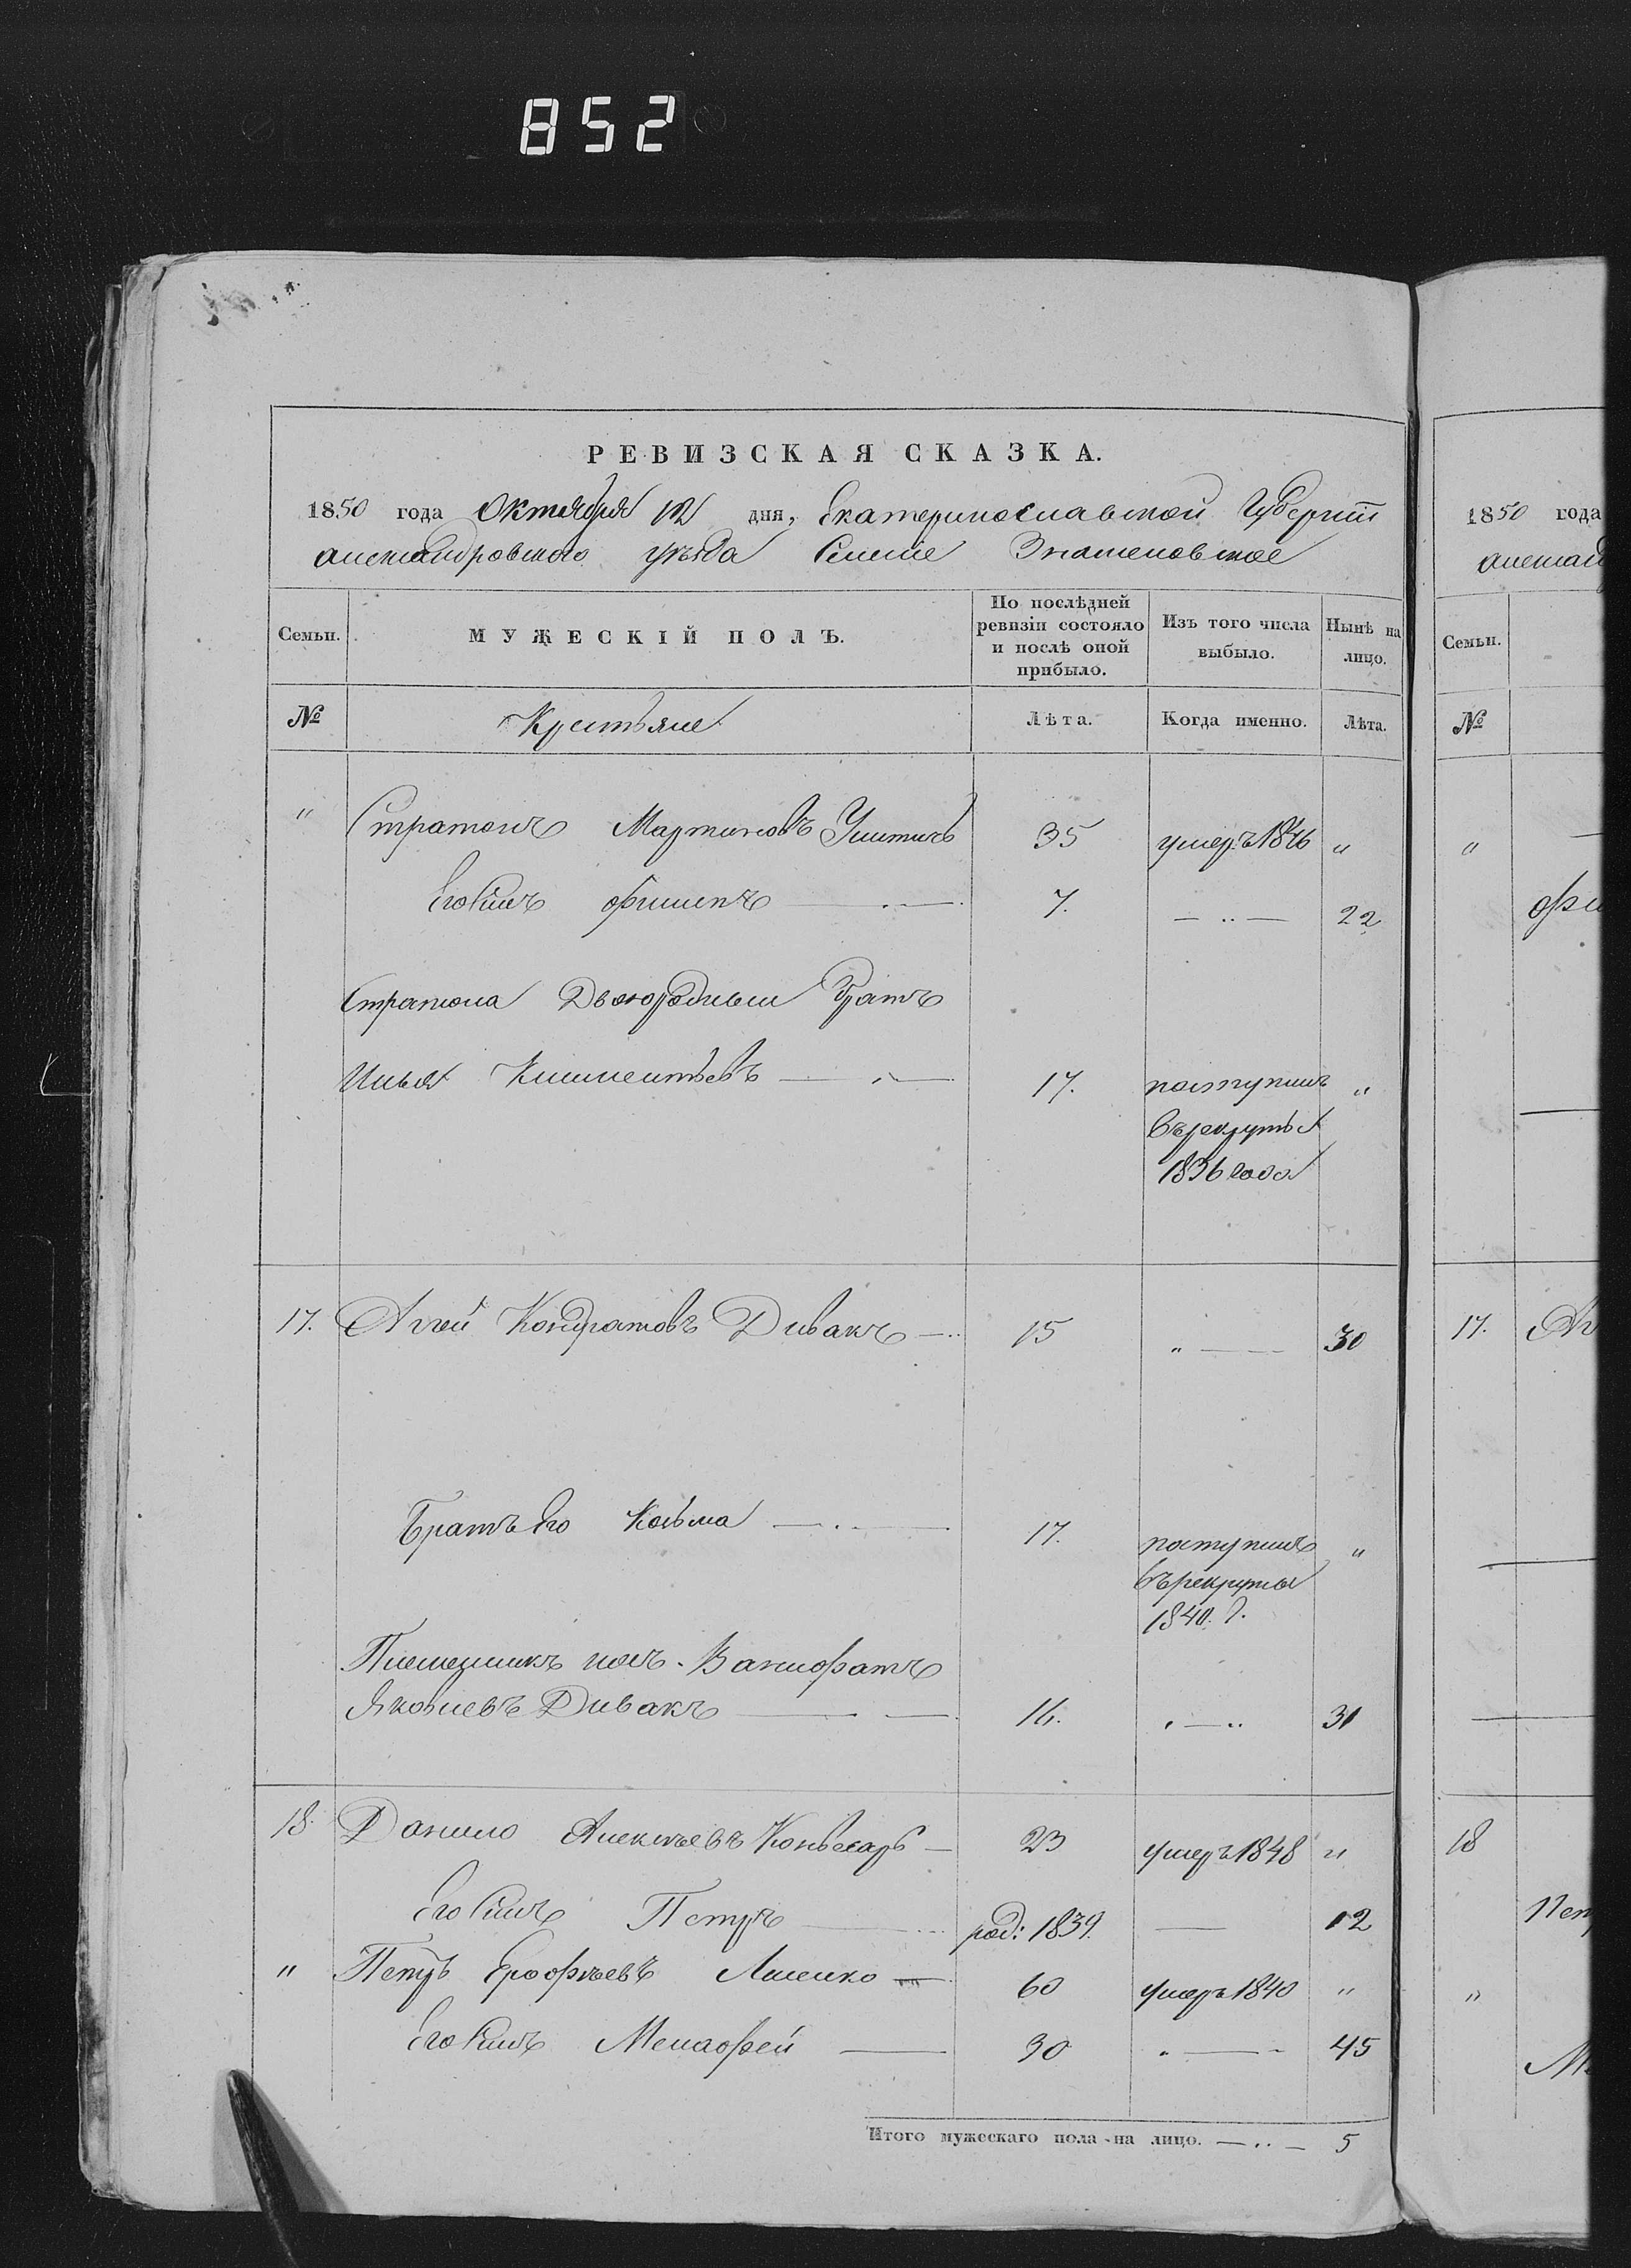 852
РЕВИЗСКАЯ СКАЗКА.
1850 года Октября 12 дня, Екатеринославской Губернiи
Александровского уезда Селение Знаменовское
Семьи. МУЖЕСКІЙ ПОЛЪ. По послѣдней ревизіи состояло и послѣ оной прибыло. Изъ того числа выбыло. Нынѣ на лицо.
№ Крестьяне Лѣта. Когда именно. Лѣта.
" Стратонъ Мартиновъ 35 умеръ 1846 "
Его Сынъ Филипъ 7. — " — 22
Стратона Двоюродный Братъ
Илья Климентьевъ — " — 17. поступилъ "
въ рекруты
1836 года
17. Аггей Кондратовъ Дивакъ — " 15 " — 30
Братъ Его Козьма — " — 17. поступилъ "
въ рекруты
1840. г.
Племянникъ ихъ
Яковлевъ Дивакъ — 16. " — " 31
18. Данило Алексѣевъ — 23 умеръ 1848 "
Его Сынъ Петръ — род: 1839. — 12
" Петръ Ерофѣевъ — 60 умеръ 1840 "
Его Сынъ Мелафей — 30 " — " 45
Итого мужескаго пола на лицо. — " — 5
1850 года
Семьи.
№
"
17.
18
"